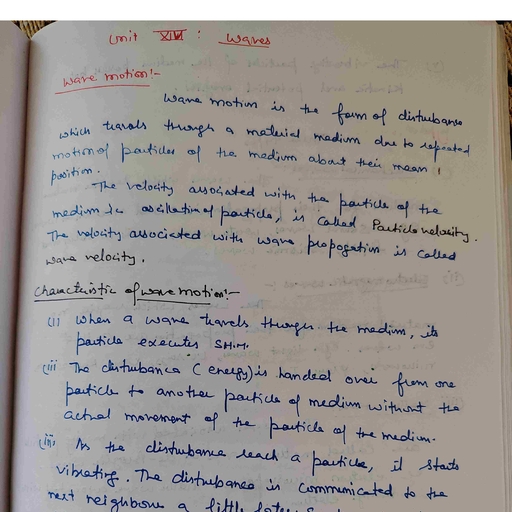 Unit XIV : Waves
Wave motion:-
Wave motion is the form of disturbance
which travels through a material medium due to repeated
motion of particles of the medium about their mean
position.
The velocity associated with the particle of the
medium in oscillation of particle, is called Particle velocity.
The velocity associated with wave propogation is called
wave velocity.
Characteristic of wave motion:-
(i) When a wave travels through the medium, its
particle executes S.H.M.
(ii) The disturbance (energy) is handed over from one
particle to another particle of medium without the
actual movement of the particle of the medium.
(iii) As the disturbance reach a particle, it starts
vibrating. The disturbance is communicated to the
next neighbour a little later